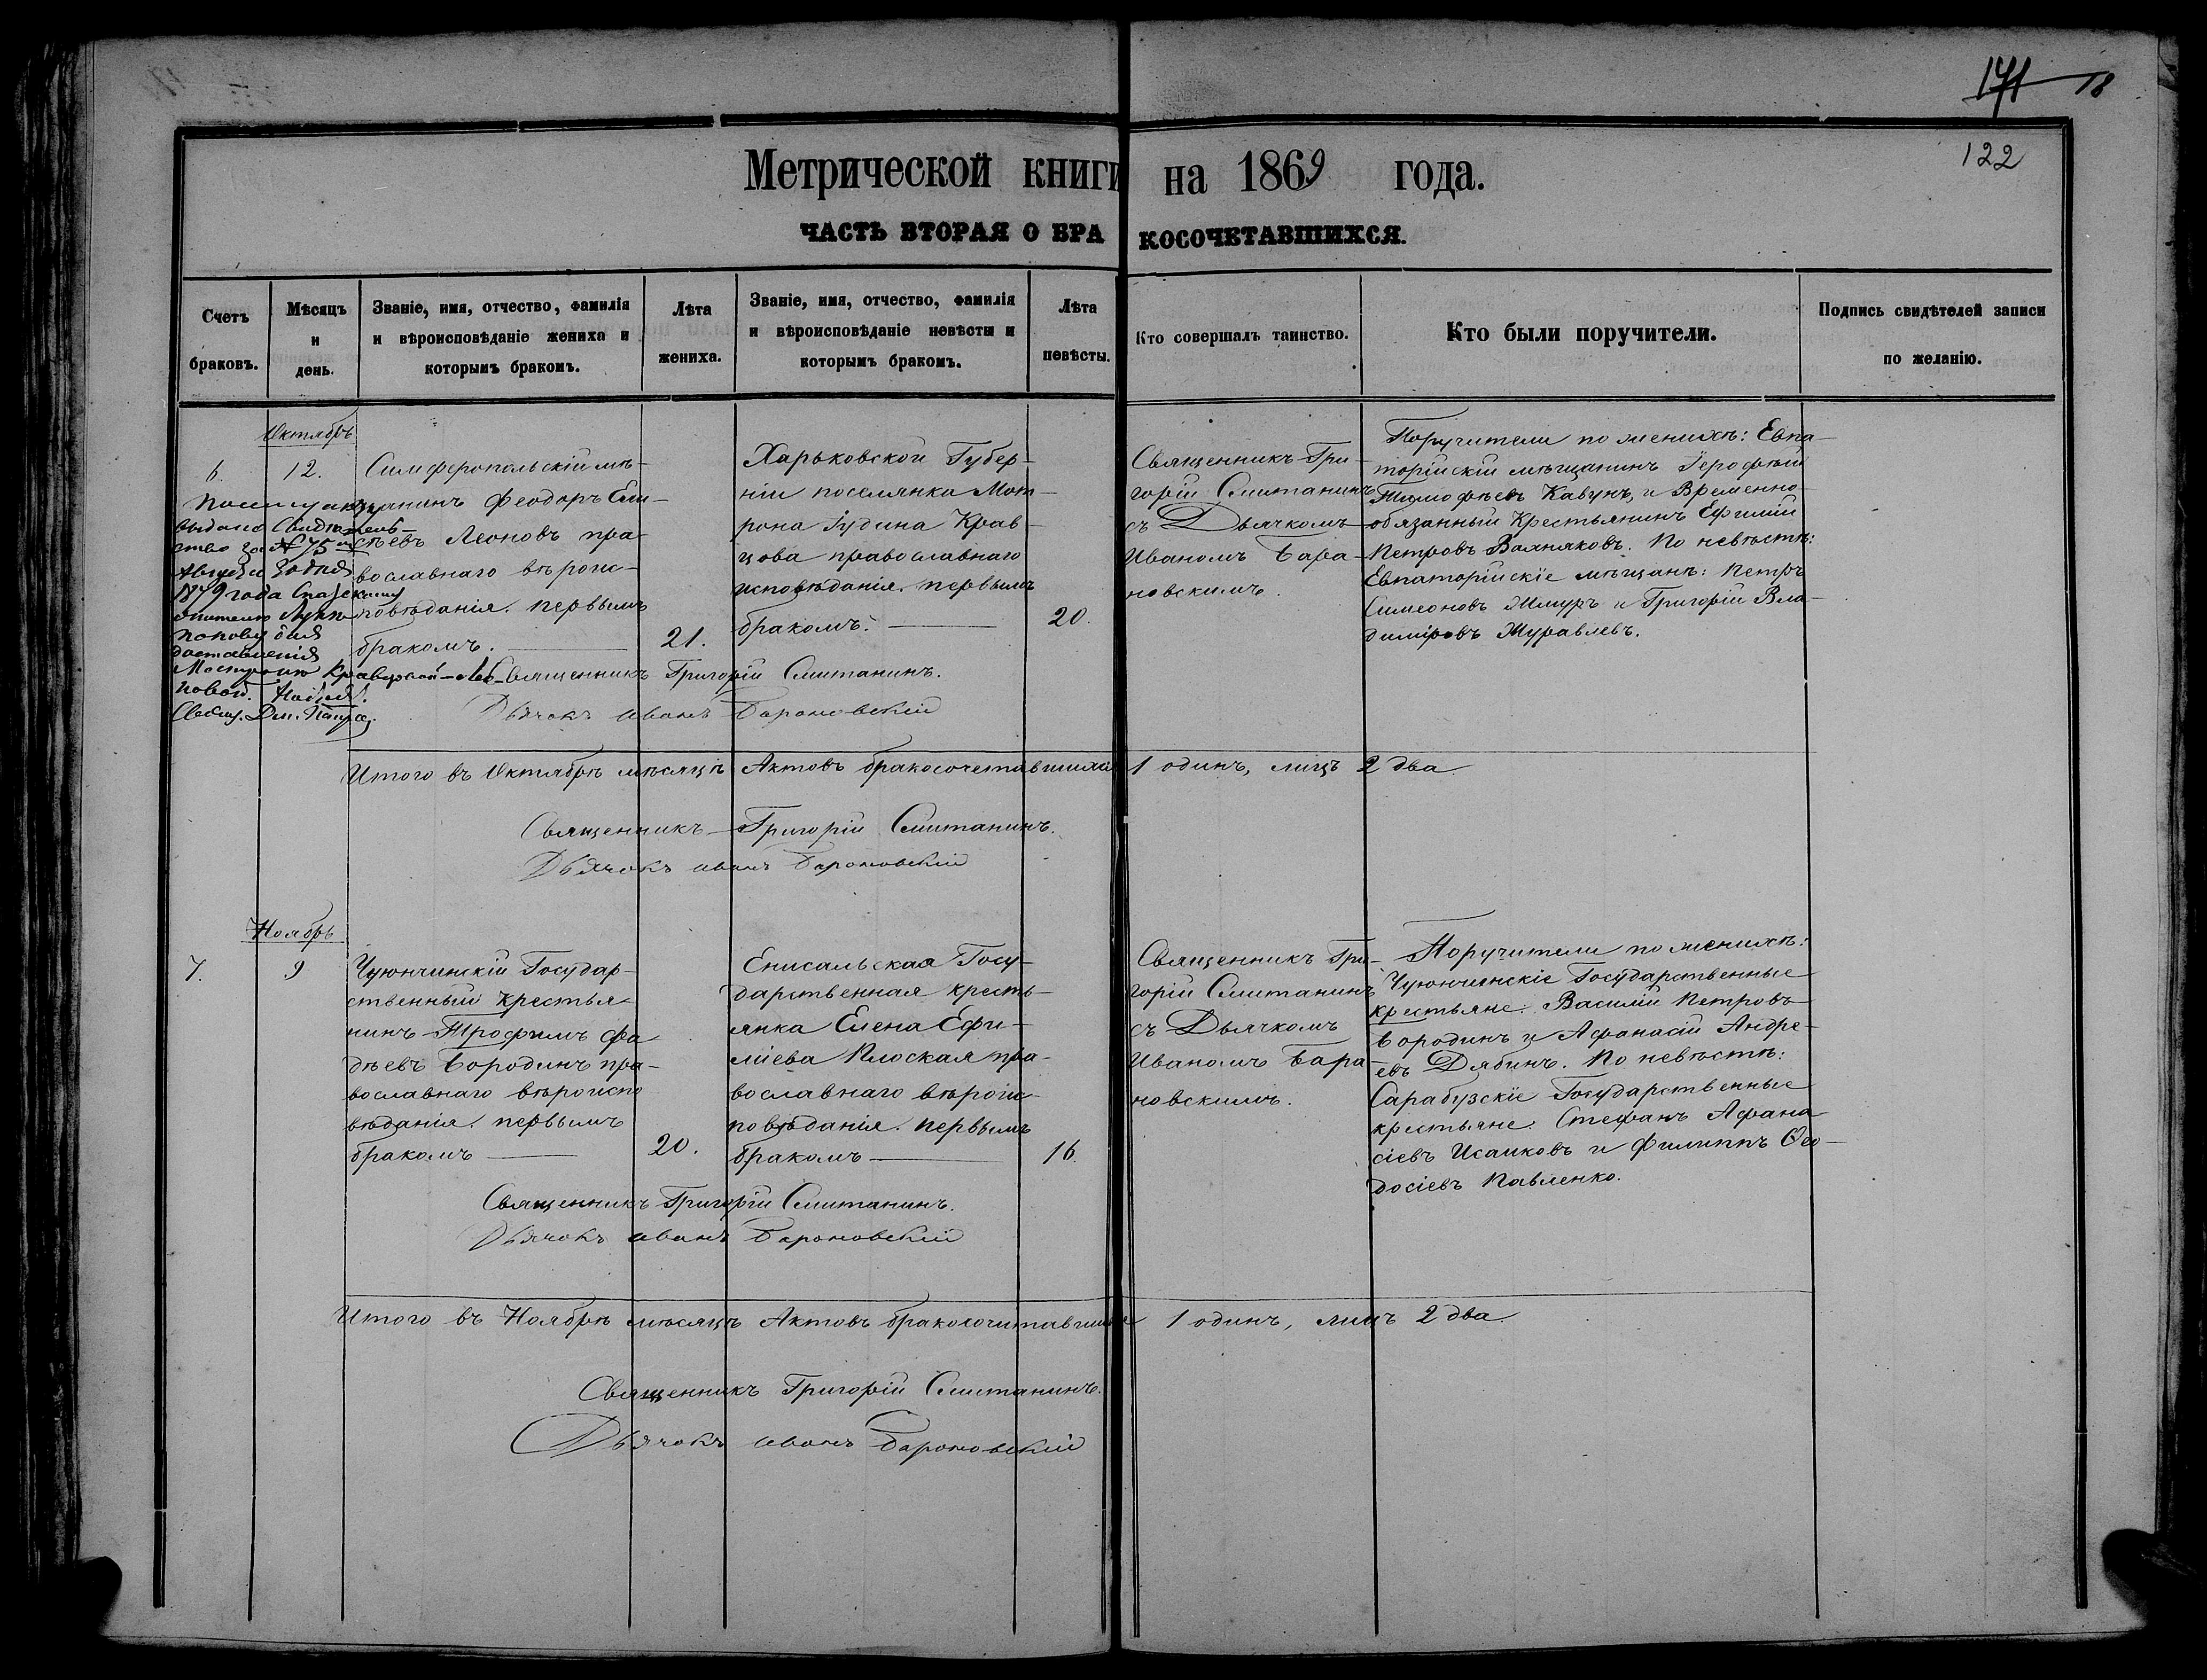 171 18
122
Метрической книги на 1869 года.
ЧАСТЬ ВТОРАЯ О БРАКОСОЧЕТАВШИХСЯ.
Счетъ
браковъ.
Мѣсяцъ
и
день.
Званіе, имя, отчество, фамилія
и вѣроисповѣданіе жениха и
которымъ бракомъ.
Лѣта
жениха.
Званіе, имя, отчество, фамилія
и вѣроисповѣданіе невѣсты и
которымъ бракомъ.
Лѣта
невѣсты.
Кто совершалъ таинство.
Кто были поручители.
Подпись свидѣтелей записи
по желанію.
Октябрь
6. 12.
выдано Свидѣтель-
ство за № 75
Августа 30 дня
1879 года
Попову для
доставленія
Симферопольскій мѣ-
щанинъ Феодоръ Ели-
сѣевъ Леоновъ пра-
вославнаго вѣроис-
повѣданія. первымъ
бракомъ.
21.
Харьковской Губер-
ніи поселянка Мот-
рона Іудина Крав-
цова православнаго
исповѣданія. первымъ
бракомъ.
20.
Священникъ Гри-
горій Смитанинъ
съ Дьячкомъ
Иваномъ Бара-
новскимъ.
Поручители по женихѣ: Евпа-
торійскій мѣщанинъ Іерофѣй
Тимофѣевъ Кавунъ, и Временно-
обязанный Крестьянинъ Ефимій
Петровъ. По невѣстѣ:
Евпаторійскіе мѣщане: Петръ
Симеоновъ и Григорій Вла-
диміровъ Журавлевъ.
Священникъ Григорій Смитанинъ.
Дьячокъ Иванъ Барановскій
Итого въ Октябрѣ мѣсяцѣ Актовъ бракосочетавшихся 1 одинъ, лицъ 2 два
Священникъ Григорій Смитанинъ.
Дьячокъ Иванъ Барановскій
Ноябрь
7. 9
Чуюнчинскій Государ-
ственный крестья-
нинъ Трофимъ Фа-
дѣевъ Бородинъ пра-
вославнаго вѣроиспо
вѣданія. первымъ
бракомъ
20.
Енисальская Госу-
дарственная кресть-
янка Елена Ефи-
міева Плоская пра-
вославнаго вѣроис-
повѣданія. первымъ
бракомъ
16.
Священникъ Гри-
горій Смитанинъ
съ Дьячкомъ
Иваномъ Бара-
новскимъ.
Поручители по женихѣ:
Чуюнчинскіе Государственные
крестьяне: Василій Петровъ
Бородинъ и Афанасій Андре-
евъ Дябинъ. По невѣстѣ:
Сарабузскіе Государственные
крестьяне: Стефанъ Афана-
сіевъ Исаиковъ и Филиппъ Ѳео-
досіевъ Павленко.
Священникъ Григорій Смитанинъ.
Дьячокъ Иванъ Барановскій
Итого въ Ноябрѣ мѣсяцѣ Актовъ бракосочитавшихся 1 одинъ, лицъ 2 два
Священникъ Григорій Смитанинъ.
Дьячокъ Иванъ Барановскій